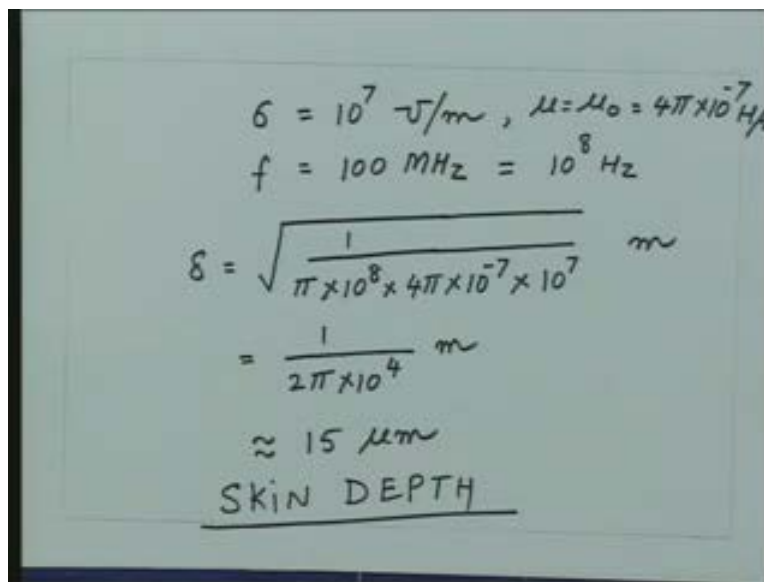 σ = 10^7 ℧/m, μ=μ₀ = 4π×10^-7 H/
f = 100 MHz = 10^8 Hz
δ = √(1 / (π×10^8×4π×10^-7×10^7)) m
= 1 / (2π×10^4) m
≈ 15 μm
SKiN DEPTH